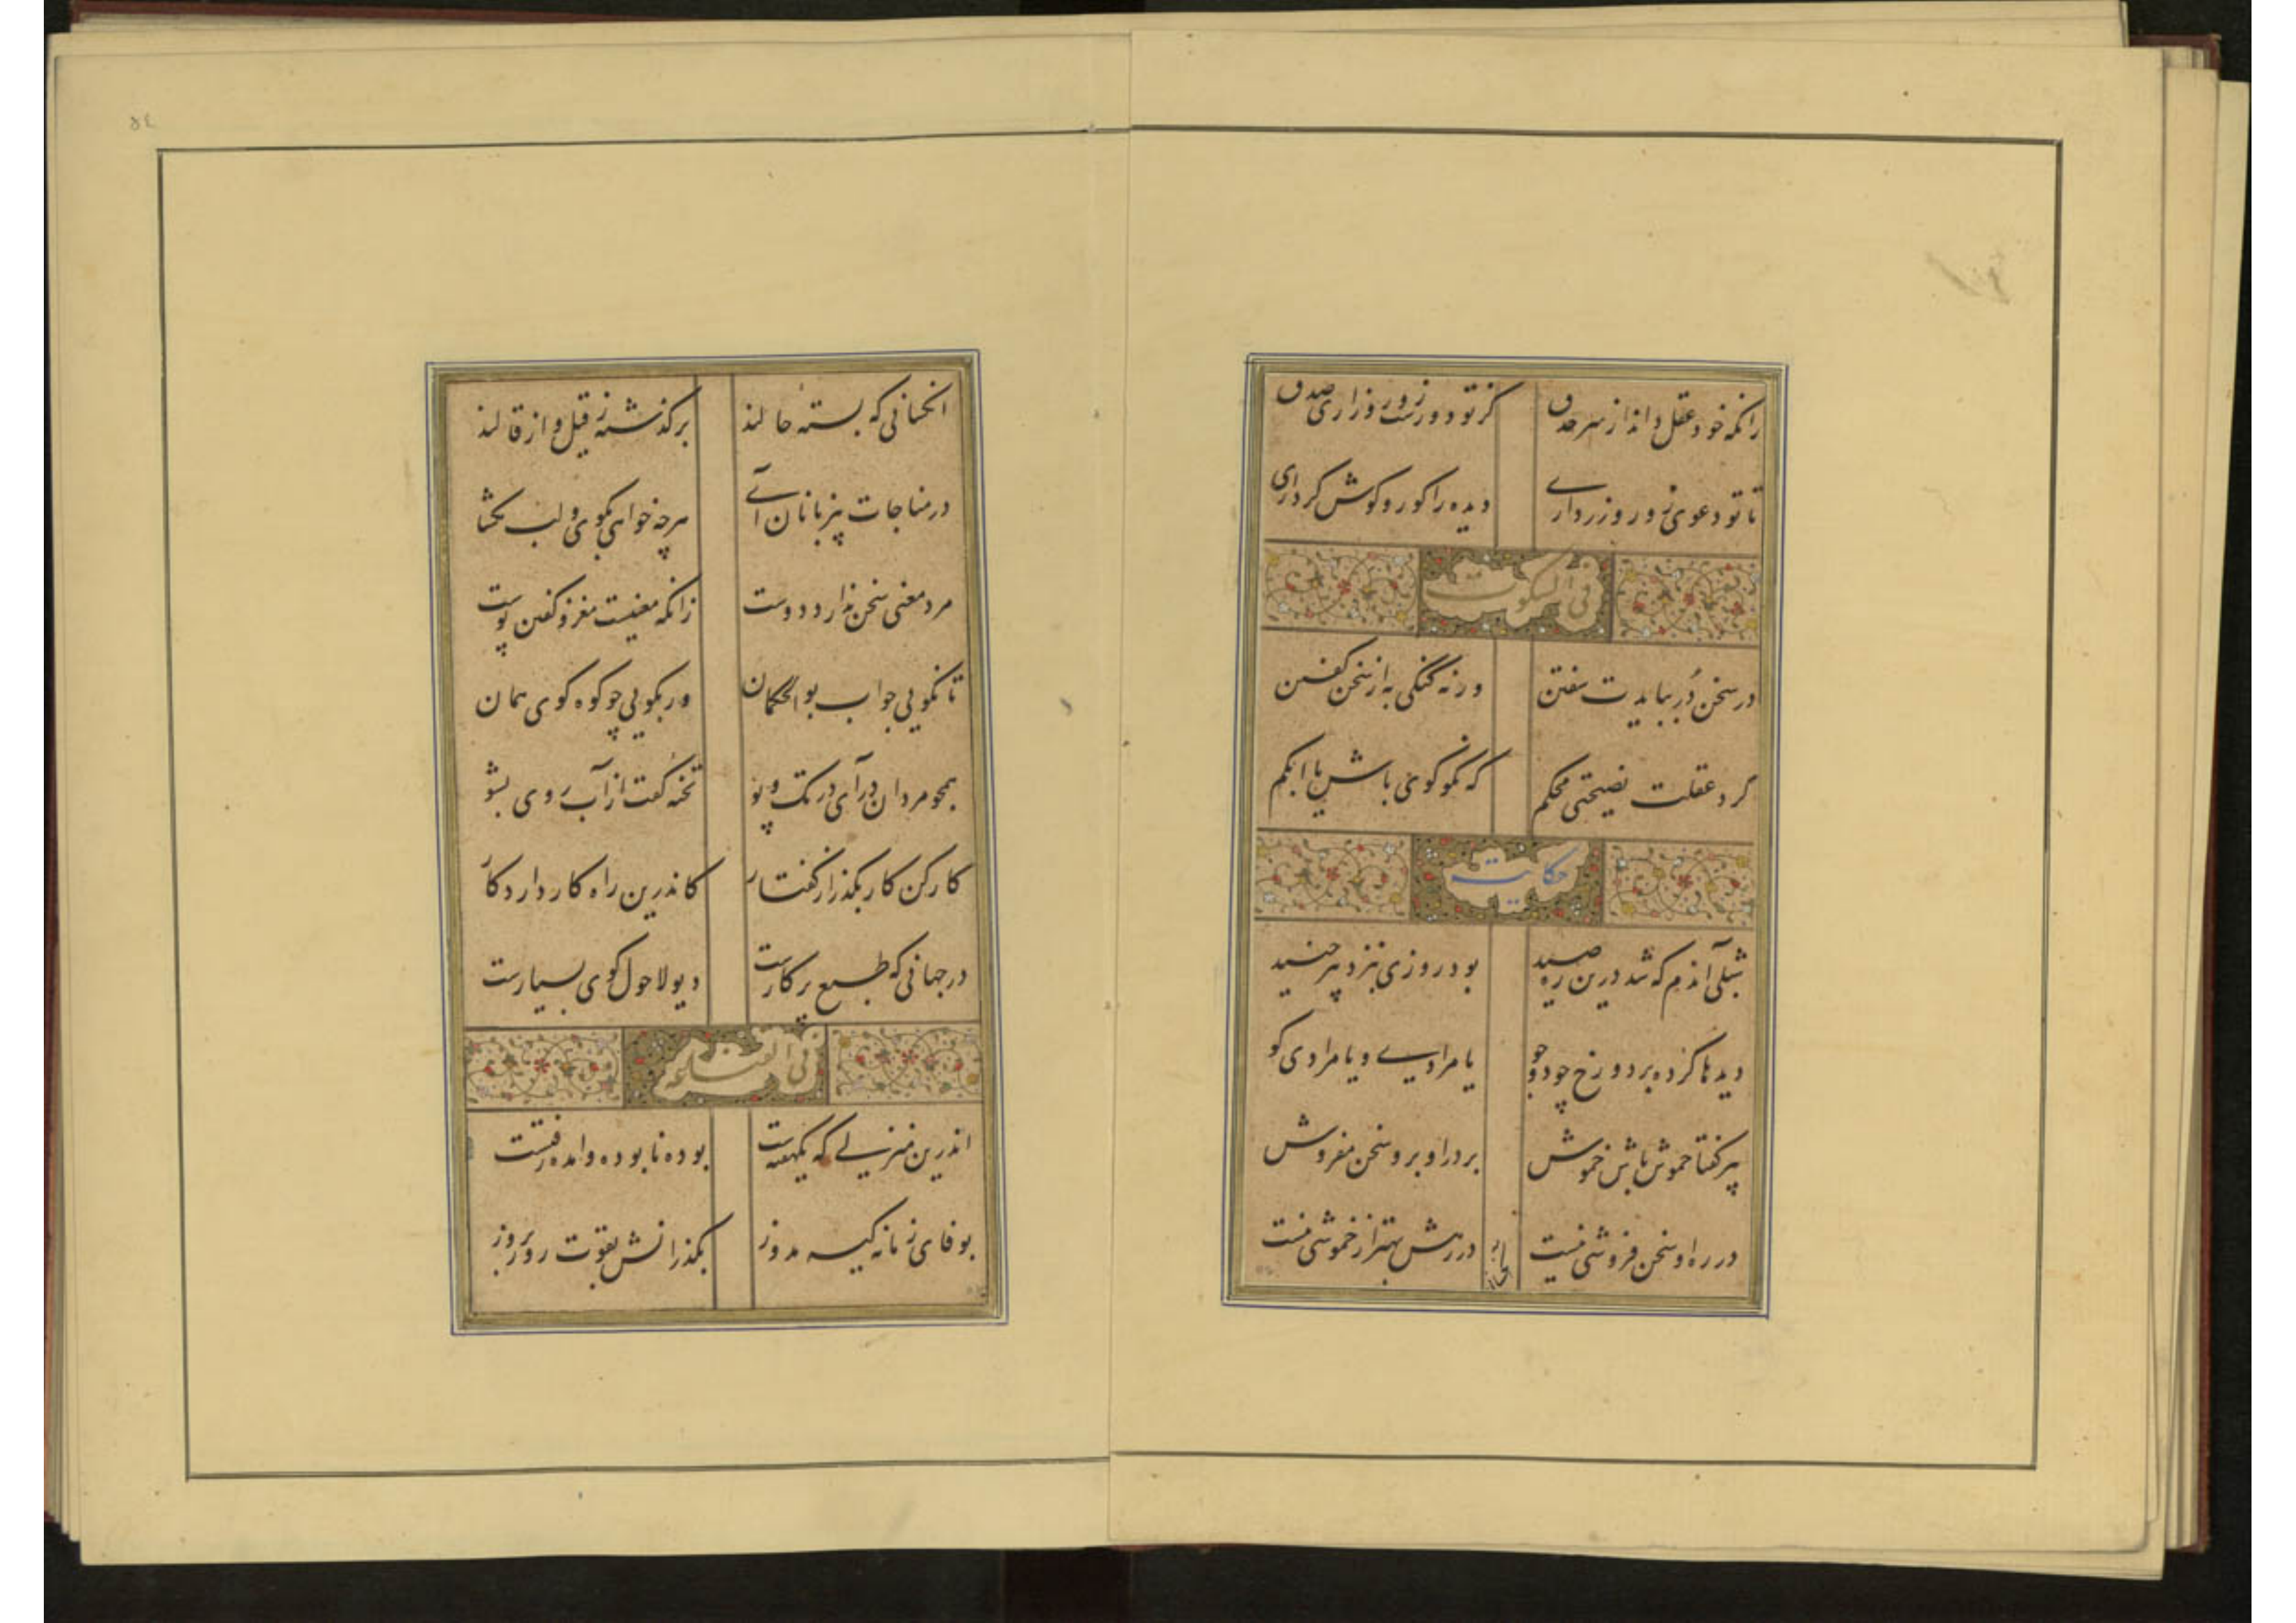 زانکه خود عقل داند از سر حدق کز تو دورست زور و زاری صدق
تا تو دعوی زور و زر داری دیده را کور و گوش کر داری
فی السکوت
در سخن دُر ببایدت سفتن ورنه گنگی به از سخن گفتن
کرد عقلت نصیحتی محکم که نکو گوی باش یا ابکم
حکایت
شبلی آندم که شد درین ره صید بود روزی بنزد پیر جنید
دیدها کرده بر دو رخ چو دو جو یا مرادی و یا مرادی گو
پیر گفتا خموش باش خموش بر در او برو سخن مفروش
در ره او سخن فروشی نیست در رهش بهتر از خموشی نیست
۵۴
انکسانی که بسته حالند برگذشته ز قیل و از قالند
در مناجات بیزبانان آی هرچه خواهی بگوی و لب مگشا
مرد معنی سخن ندارد دوست زانکه معنیست مغز و گفتن پوست
تا نگویی جواب بوالحکمان ور بگویی چو کوه گوی همان
همچو مردان درآی در تک و پو تخته گفت از آب روی بشو
کار کن کار بگذر از گفتار کاندرین راه کار دارد کار
در جهانی که طبع پر کارست دیو لاحول گوی بسیارست
فی الغفلة
اندرین منزلی که یکهفته‌ست بوده نابوده وامده رفتست
بوفای زمانه کیسه مدوز بگذرانش بقوت روز بروز